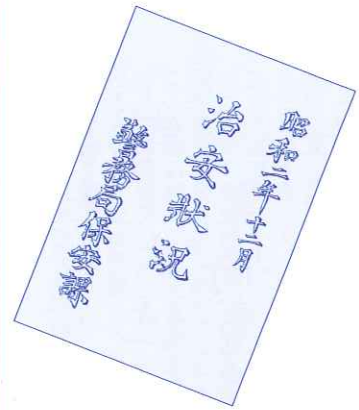 昭和二年十二月
治安狀況
警務局保安課